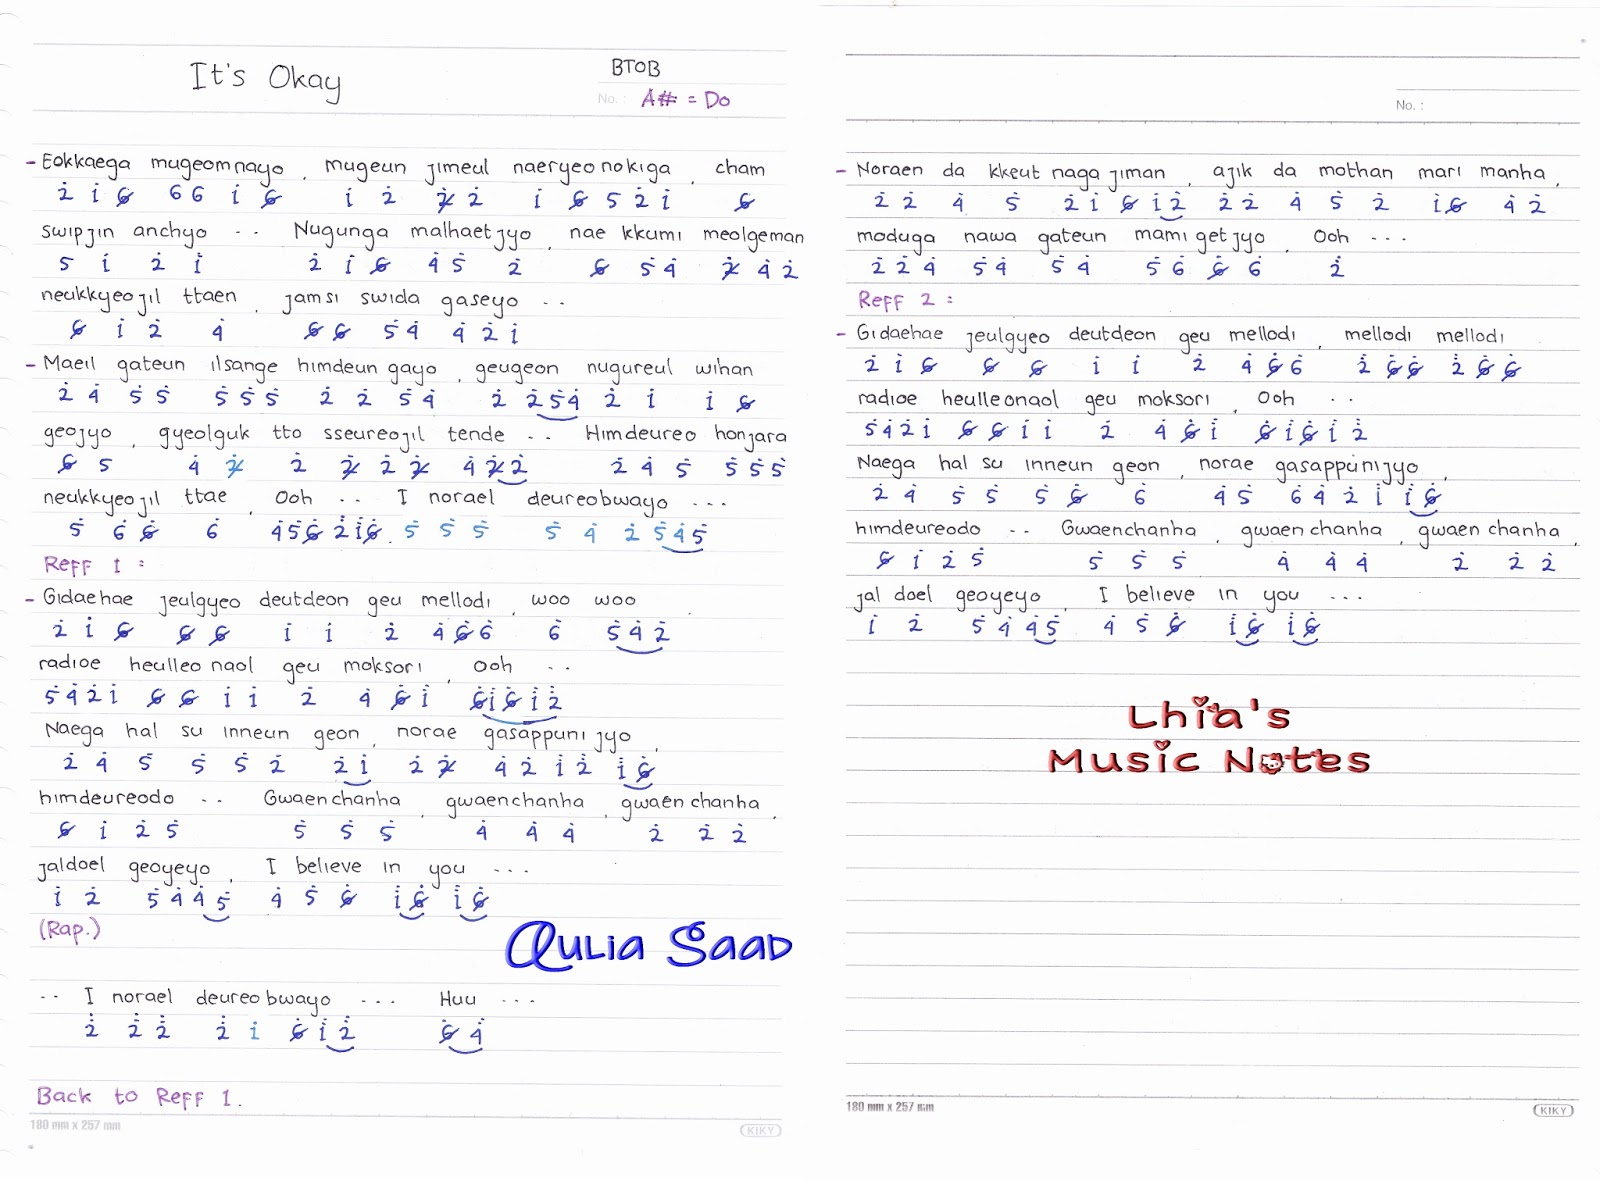 It's Okay
BTOB
No. : A# = Do
- Eokkaega mugeomnayo, mugeun jimeul naeryeonokiga, cham
2 1 6 6 6 1 6 1 2 2 2 1 6 5 2 1 6
swipjin anchyo .. Nugunga malhaetjyo, nae kkumi meolgeman
5 1 2 1 2 1 6 4 5 2 6 5 4 2 4 2
neukkyeojil ttaen, jamsi swida gaseyo ..
6 1 2 4 6 6 5 4 4 2 1
- Maeil gateun ilsange himdeun gayo, geugeon nugureul wihan
2 4 5 5 5 5 5 2 2 5 4 2 2 5 4 2 1 1 6
geojyo, gyeolguk tto sseureojil tende .. Himdeureo honjara
6 5 4 2 2 2 2 2 4 2 2 2 4 5 5 5 5
neukkyeojil ttae, Ooh .. I norael deureobwayo ...
5 6 6 6 4 5 6 2 1 6 . 5 5 5 5 4 2 5 4 5
Reff 1 :
- Gidaehae jeulgyeo deutdeon geu mellodi, woo woo.
2 1 6 6 6 1 1 2 4 6 6 6 5 4 2
radioe heulleonaol geu moksori, Ooh ..
5 4 2 1 6 6 1 1 2 4 6 1 6 1 6 1 2
Naega hal su inneun geon, norae gasappunijyo,
2 4 5 5 5 2 2 1 2 2 4 2 1 2 1 6
himdeureodo .. Gwaenchanha, gwaenchanha, gwaenchanha,
6 1 2 5 5 5 5 4 4 4 2 2 2
jaldoel geoyeyo, I believe in you ...
1 2 5 4 4 5 4 5 6 1 6 1 6
(Rap.)
Qulia Saad
.. I norael deureobwayo ... Huu ...
2 2 2 2 1 6 1 2 6 4
Back to Reff 1.
180 mm x 257 mm
KIKY
No. :
- Noraen da kkeut naga jiman, ajik da mothan mari manha,
2 2 4 5 2 1 6 1 2 2 2 4 5 2 1 6 4 2
moduga nawa gateun mami getjyo, Ooh ...
2 2 4 5 4 5 4 5 6 6 6 2
Reff 2 :
- Gidaehae jeulgyeo deutdeon geu mellodi, mellodi mellodi
2 1 6 6 6 1 1 2 4 6 6 2 6 6 2 6 6
radioe heulleonaol geu moksori, Ooh ..
5 4 2 1 6 6 1 1 2 4 6 1 6 1 6 1 2
Naega hal su inneun geon, norae gasappunijyo,
2 4 5 5 5 6 6 4 5 6 4 2 1 1 6
himdeureodo .. Gwaenchanha, gwaenchanha, gwaenchanha,
6 1 2 5 5 5 5 4 4 4 2 2 2
jal doel geoyeyo, I believe in you ...
1 2 5 4 4 5 4 5 6 1 6 1 6
Lhia's
Music Notes
180 mm x 257 mm
KIKY